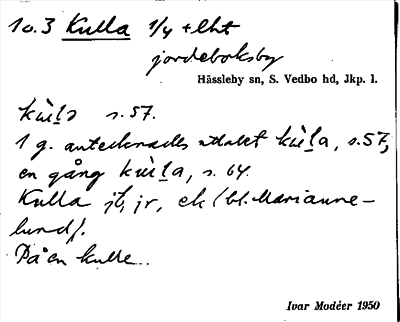 10.3 Kulla 1/4 + lht
jordeboksby
Hässleby sn, S. Vedbo hd, Jkp. l.
s. 57.
1 g. antecknades uttalet kùl̥a, s. 57,
en gång kùl̥a, s. 64.
Kulla jb, jr, ek (bl. Marianne-
lund).
På en kulle.
Ivar Modéer 1950